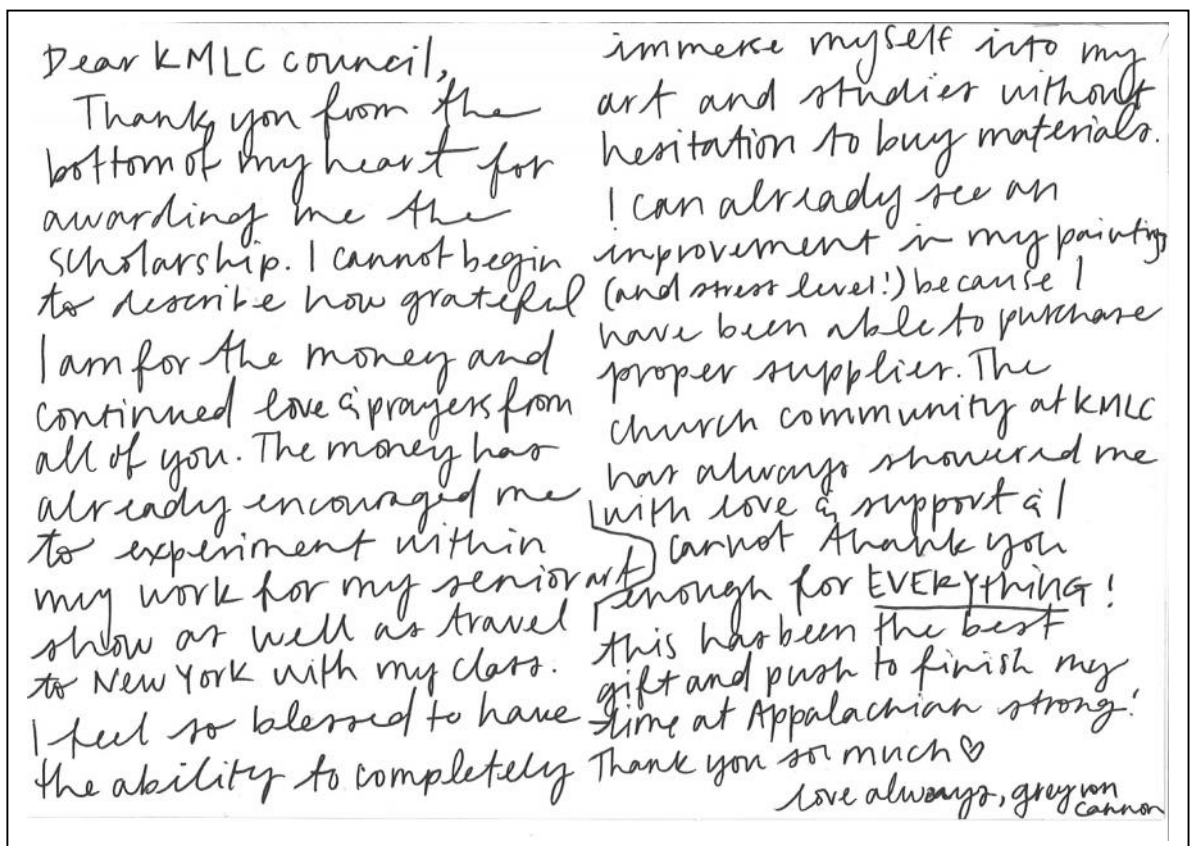 Dear KMLC council,
Thank you from the
bottom of my heart for
awarding me the
scholarship. I cannot begin
to describe how grateful
I am for the money and
continued love & prayers from
all of you. The money has
already encouraged me
to experiment within
my work for my senior art
show as well as travel
to New York with my class.
I feel so blessed to have
the ability to completely
immerse myself into my
art and studies without
hesitation to buy materials.
I can already see an
improvement in my paintings
(and stress level!) because I
have been able to purchase
proper supplies. The
church community at KMLC
has always showered me
with love & support & I
cannot thank you
enough for EVERYthiNG!
this has been the best
gift and push to finish my
time at Appalachian strong!
Thank you so much ♡
love always, grey von
cannon